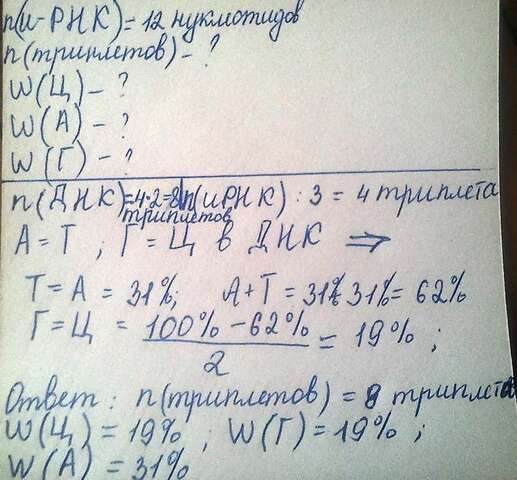 n(и-РНК) = 12 нуклеотидов
n(триплетов) - ?
W(Ц) - ?
W(А) - ?
W(Г) - ?
n(ДНК)=4·2=8 n(иРНК) : 3 = 4 триплета
триплетов
А = Т ; Г = Ц в ДНК ⇒
Т = А = 31%; А+Т = 31% 31% = 62%
Г = Ц = 100% - 62% / 2 = 19% ;
Ответ : n(триплетов) = 8 триплетов
W(Ц) = 19% ; W(Г) = 19% ;
W(А) = 31%